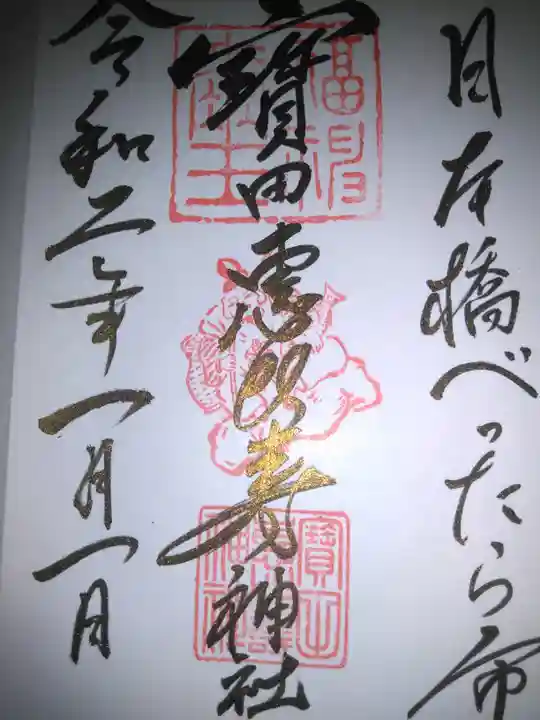 日本橋べったら市
寶田恵比寿神社
令和二年一月一日